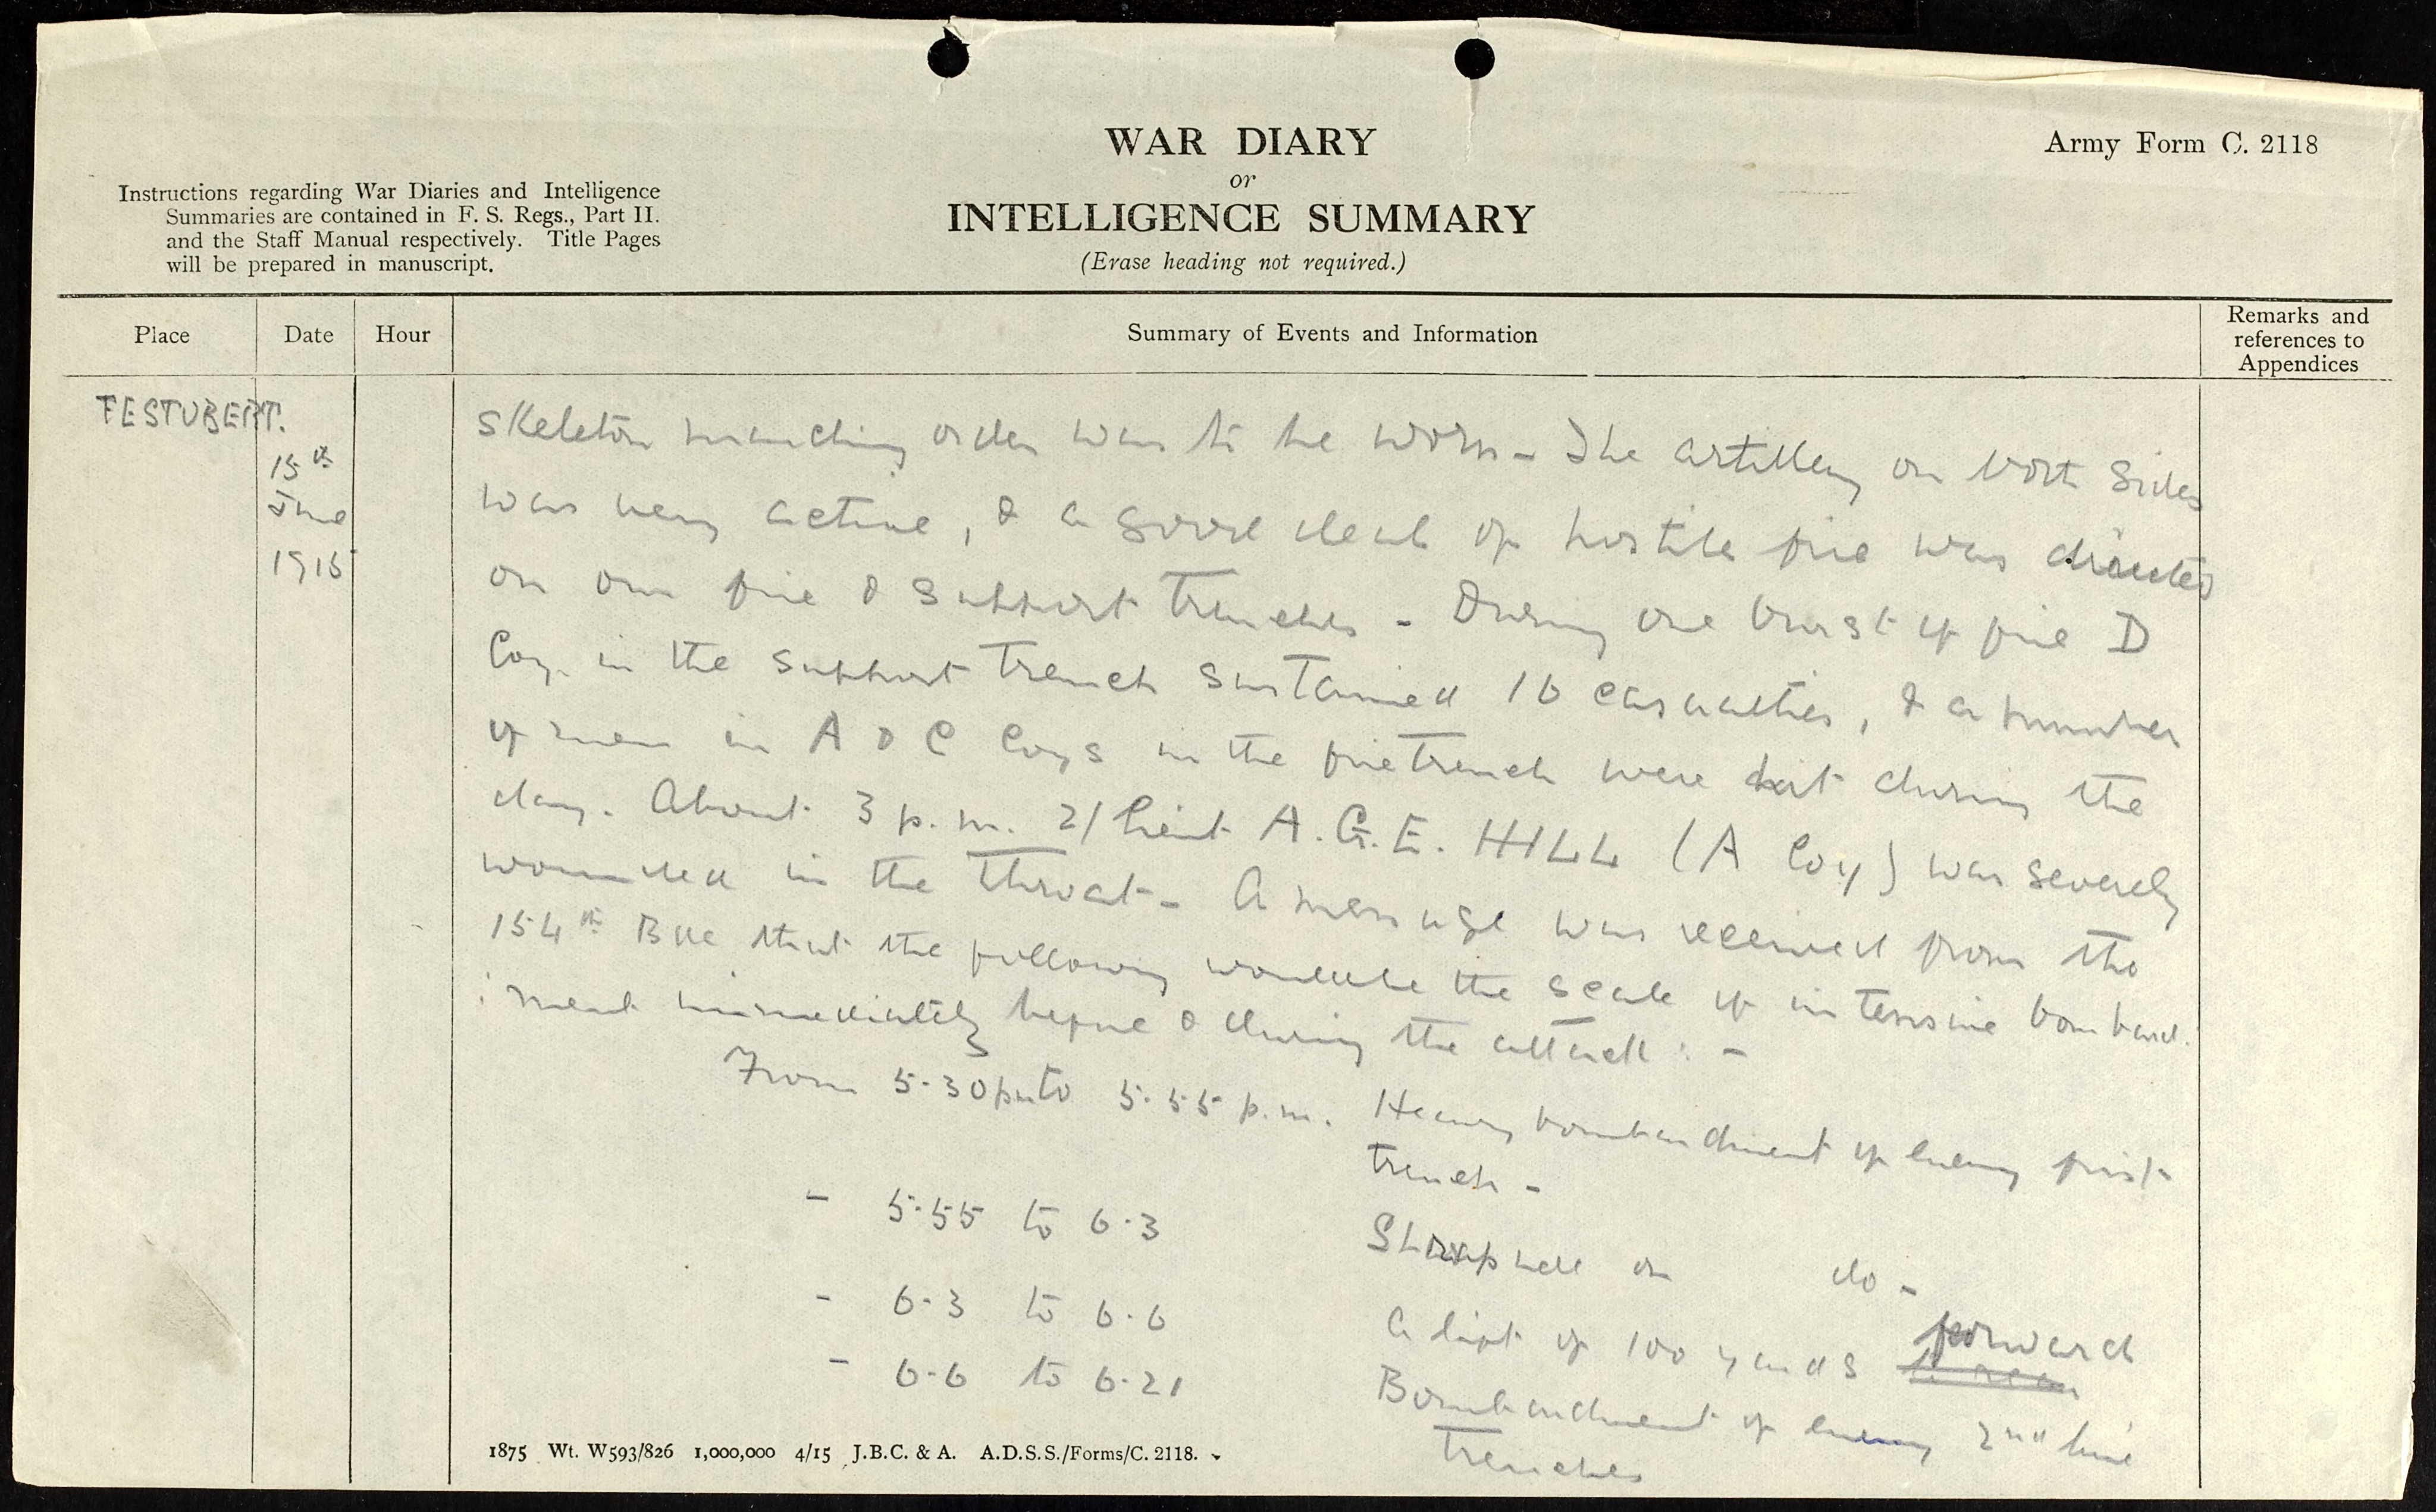 WAR DIARY
or
INTELLIGENCE SUMMARY
(Erase heading not required.)
Army Form C. 2118
Instructions regarding War Diaries and Intelligence
Summaries are contained in F. S. Regs., Part II.
and the Staff Manual respectively. Title Pages
will be prepared in manuscript.
Place
Date
Hour
Summary of Events and Information
Remarks and
references to
Appendices
FESTUBERT.
15th
June
1915
skeleton marching order was to be worn - The artillery on both sides
was very active, & a good deal of hostile fire was directed
on our fire & support trenches - During one burst of fire D
Coy. in the support trench sustained 16 casualties, & a number
of men in A & C Coys in the fire trench were hit during the
day. About 3 p.m. 2/Lieut A.G.E. HILL (A Coy) was severely
wounded in the throat - A message was received from the
154th Bde that the following would be the scale of intensive bombard:
:ment immediately before & during the attack : -
From 5.30pm to 5.55 p.m. Heavy bombardment of enemy first
trench -
- 5.55 to 6.3 Shrapnell on do -
- 6.3 to 6.6 A lift of 100 yards forward
- 6.6 to 6.21 Bombardment of enemy 2nd line
trenches
1875 Wt. W593/826 1,000,000 4/15 J.B.C. & A. A.D.S.S./Forms/C. 2118.